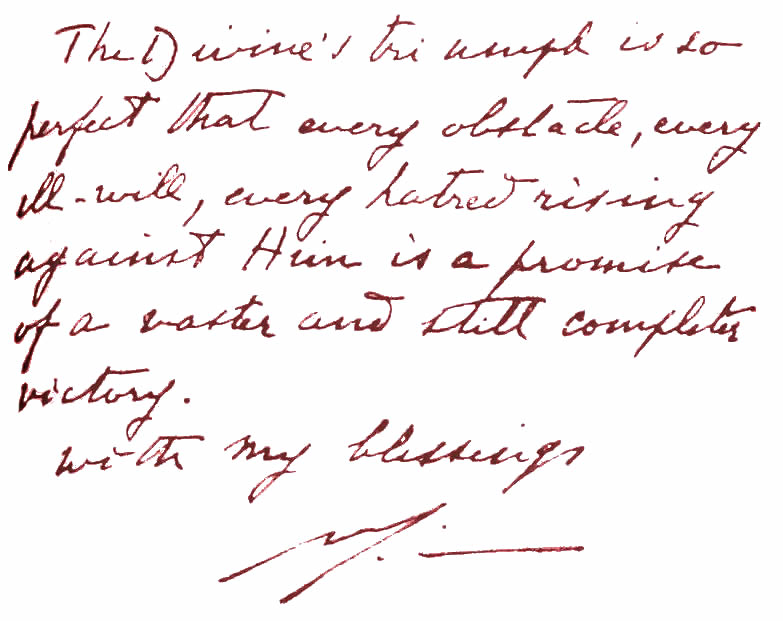 The Divine's triumph is so
perfect that every obstacle, every
ill-will, every hatred rising
against Him is a promise
of a vaster and still completer
victory.
with my blessings